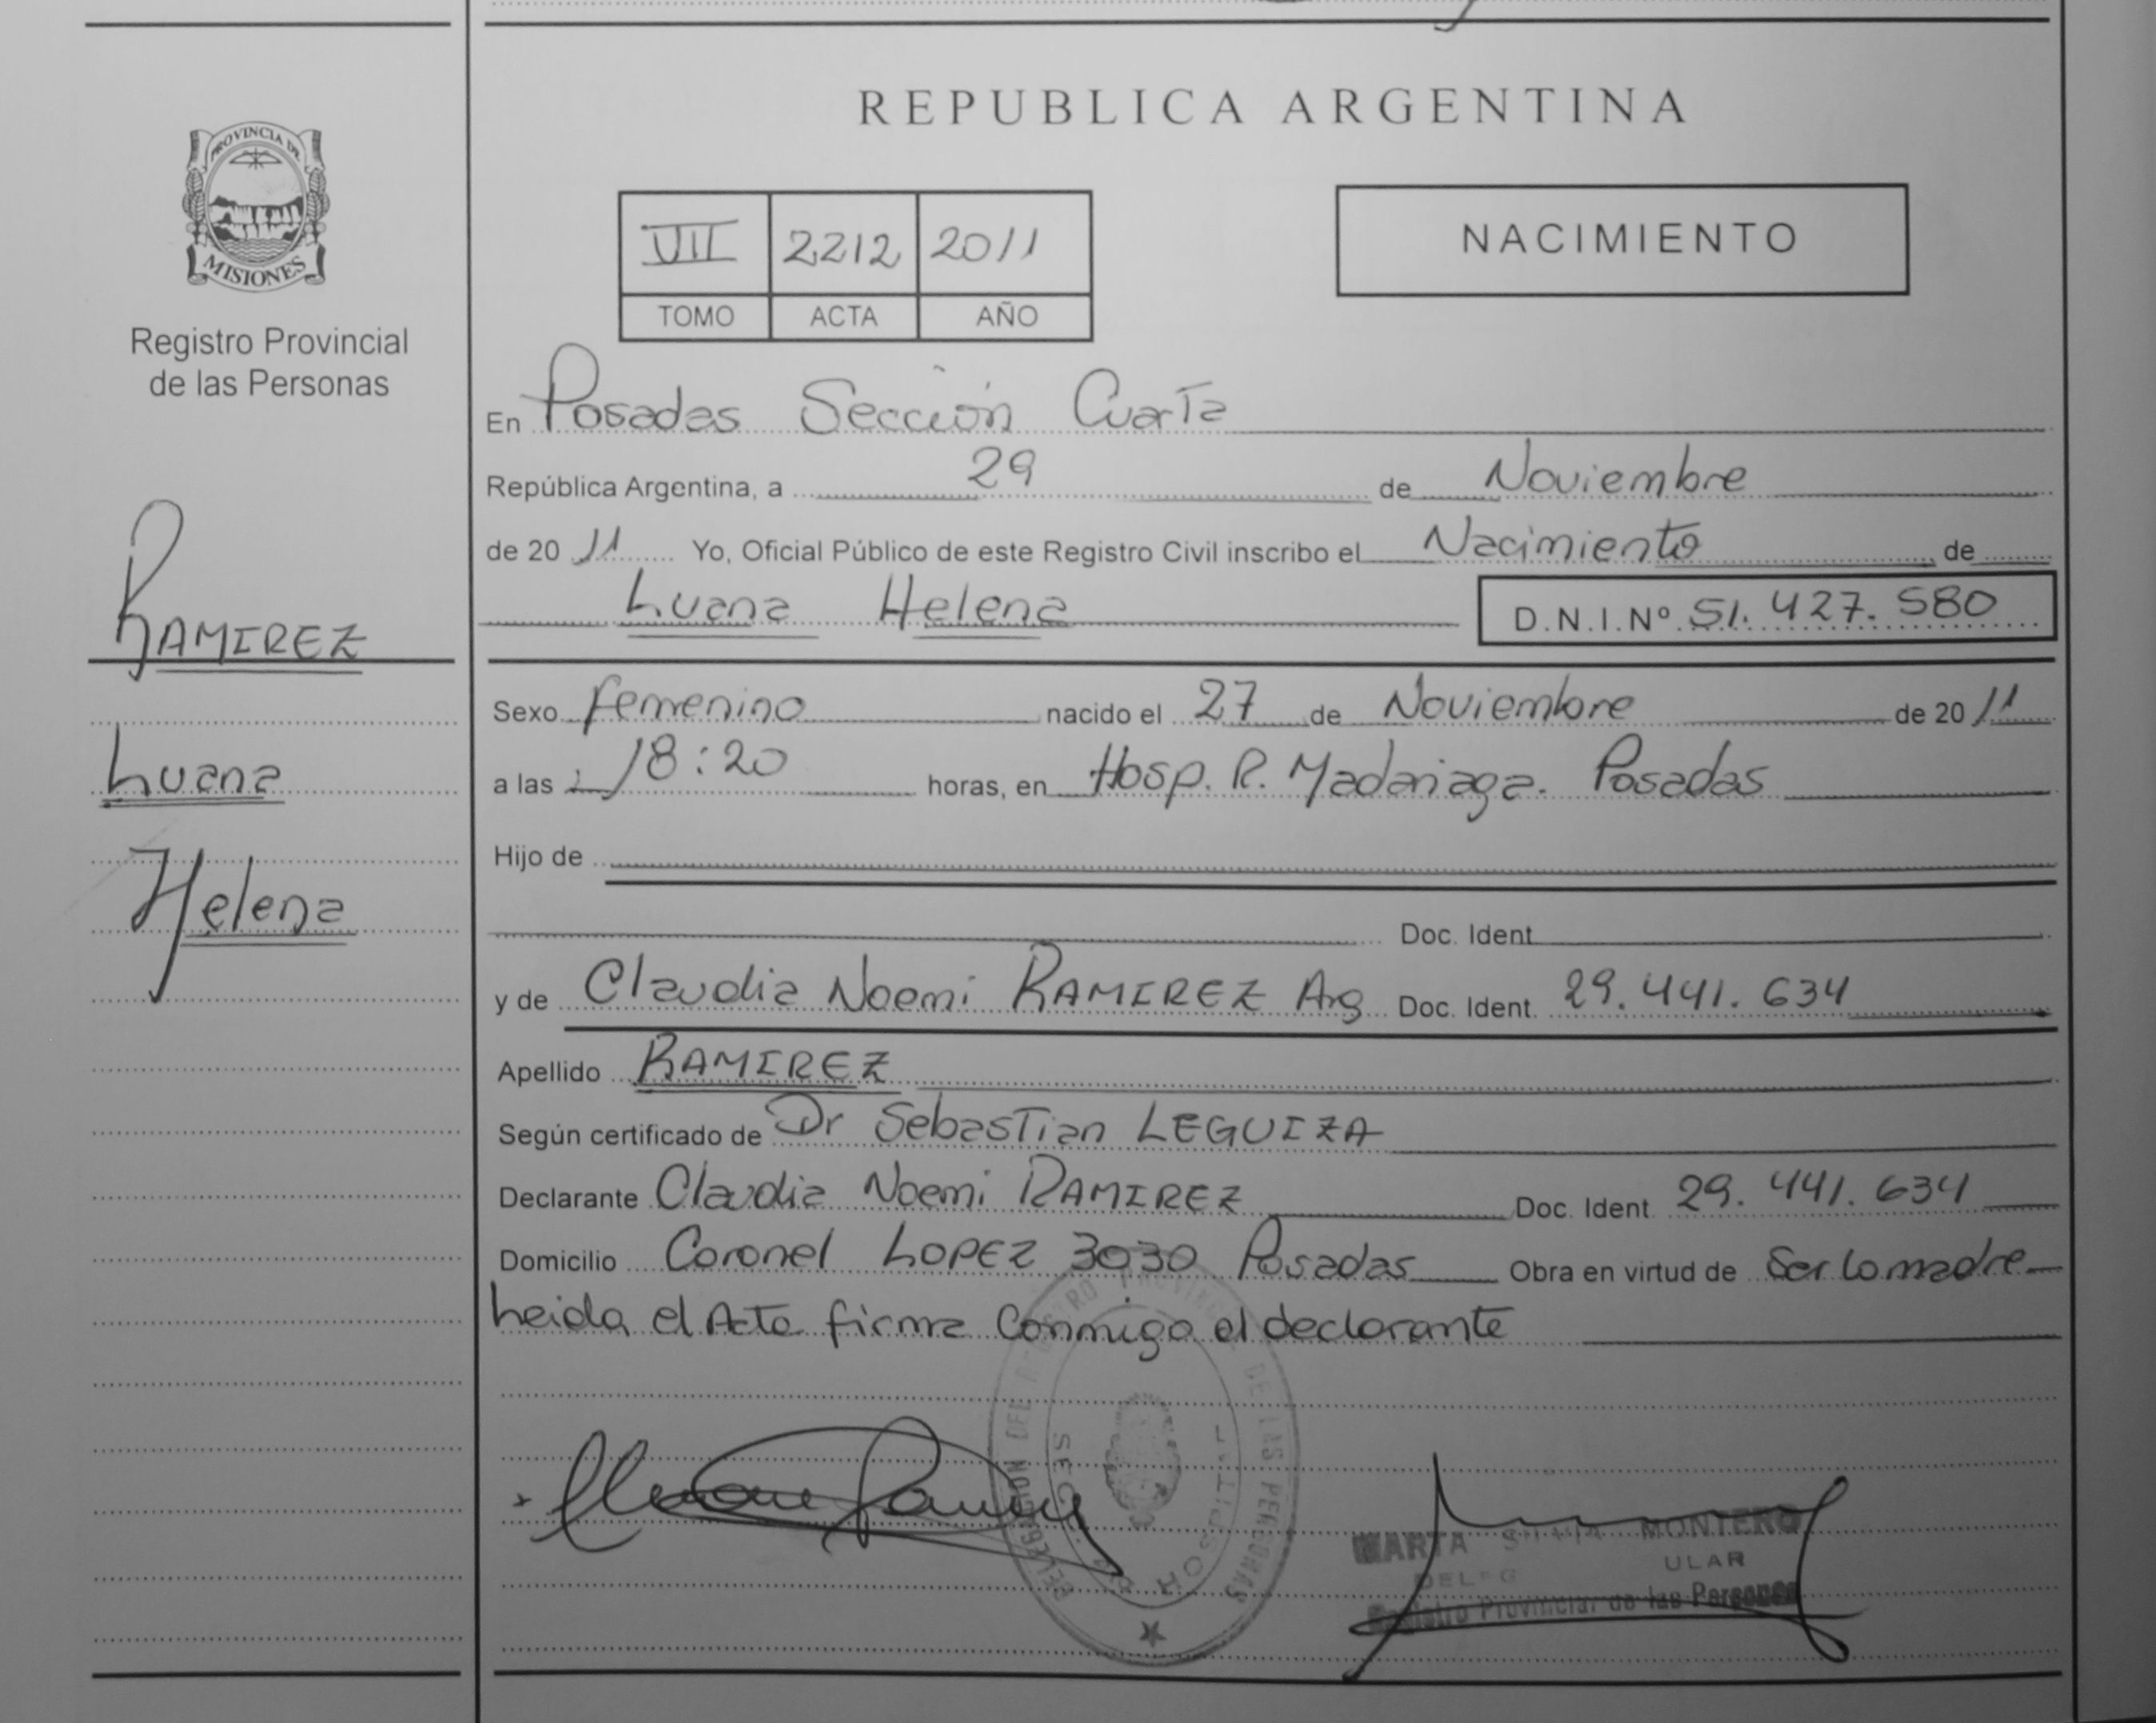 REPUBLICA ARGENTINA
PROVINCIA DE
MISIONES
Registro Provincial
de las Personas
VII 2212 2011
TOMO ACTA AÑO
NACIMIENTO
En Posadas Sección Cuarta
República Argentina, a 29 de Noviembre
de 20 11 Yo, Oficial Público de este Registro Civil inscribo el Nacimiento de
Luana Helena D.N.I.Nº 51.427.580
RAMIREZ
Luana
Helena
Sexo femenino nacido el 27 de Noviembre de 20 11
a las 18:20 horas, en Hosp. R. Madariaga. Posadas
Hijo de
Doc. Ident.
y de Claudia Noemi RAMIREZ Arg Doc. Ident. 29.441.634
Apellido RAMIREZ
Según certificado de Dr Sebastian LEGUIZA
Declarante Claudia Noemi RAMIREZ Doc. Ident. 29.441.634
Domicilio Coronel LOPEZ 3030 Posadas Obra en virtud de Ser la madre
Leida el Acta firma conmigo el declarante
DELEGACION DEL REGISTRO PROVINCIAL DE LAS PERSONAS
SECC. HOSPITAL
MARTA SILVIA MONTERO
Registro Provincial de las Personas